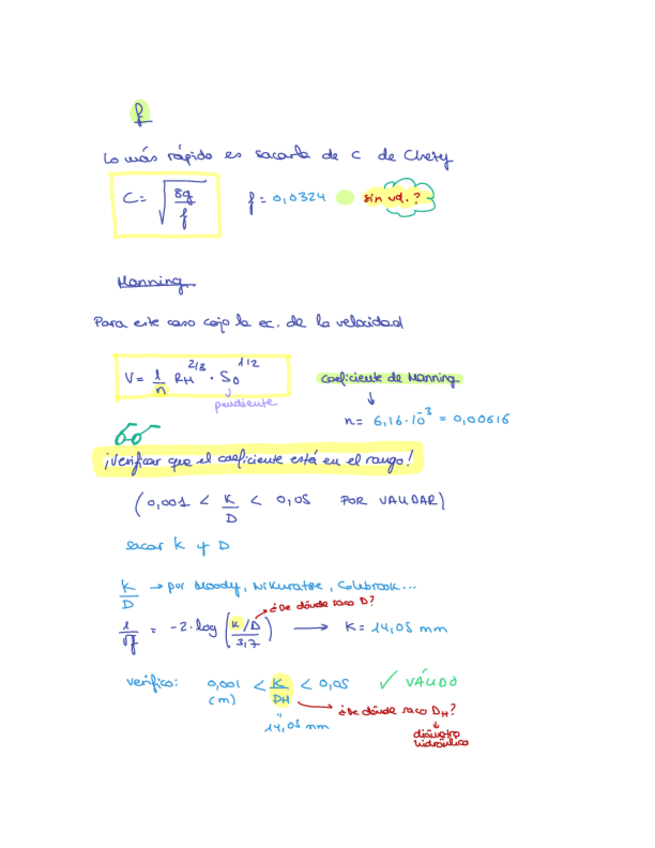 f
Lo más rápido es sacarla de C de Chezy
C = √(8g/f) f = 0,0324 sin ud.?
Manning
Para este caso cojo la ec. de la velocidad
V = 1/n RH^2/3 · So^1/2 Coeficiente de Manning
pendiente
n = 6,16·10^-3 = 0,00616
¡Verificar que el coeficiente está en el rango!
(0,001 < K/D < 0,05 POR VALIDAR)
sacar K y D
K/D → por Moody, Nikuratse, Colebrook...
¿De dónde saco D?
1/√f = -2·log (K/D / 3,7) → K = 14,05 mm
verifico: 0,001 < K/DH < 0,05 ✓ VÁLIDO
(m)
¿De dónde saco DH?
14,05 mm
diámetro
hidráulico